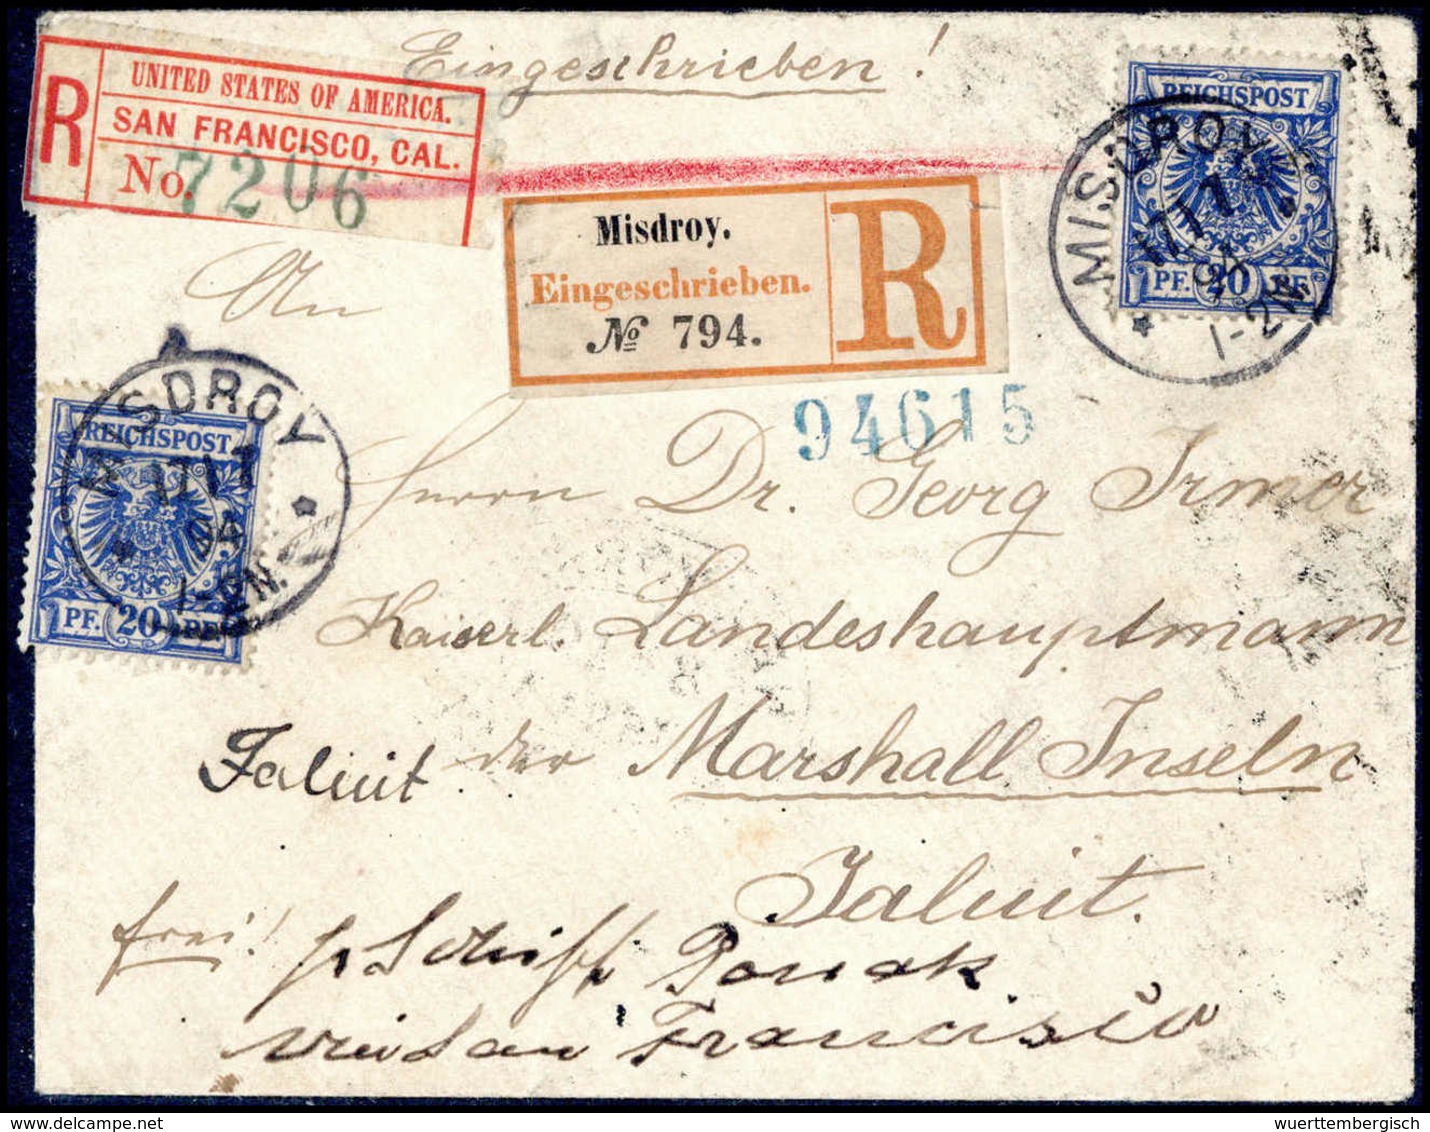 Eingeschrieben!
R
UNITED STATES OF AMERICA.
SAN FRANCISCO, CAL.
No. 7206
Misdroy.
Eingeschrieben.
№ 794.
R
REICHSPOST
PF. 20 PF.
MISDROY
17/1
94
1-2N.
94615
An
REICHSPOST
PF. 20 PF.
MISDROY
17/1
94
1-2N.
Herrn Dr. Georg Irmer
Kaiserl. Landeshauptmann
der Marshall Inseln
Jaluit
Jaluit.
frei!
p Schiff
San Francisco
wuerttembergisch